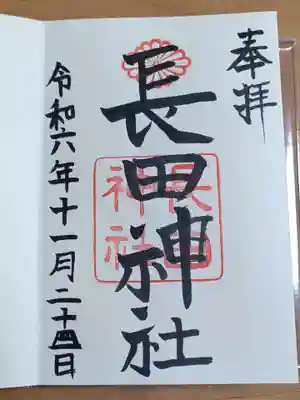 奉拝
長田神社
長田神社
令和六年十一月二十四日